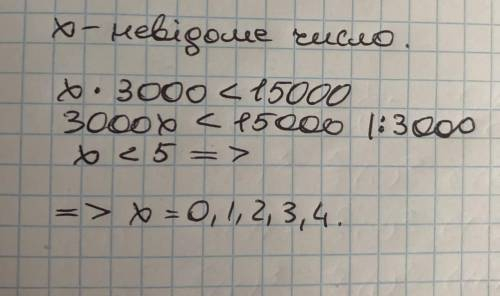 x – невідоме число.
x · 3000 < 15000
3000x < 15000 |:3000
x < 5 =>
=> x = 0, 1, 2, 3, 4.